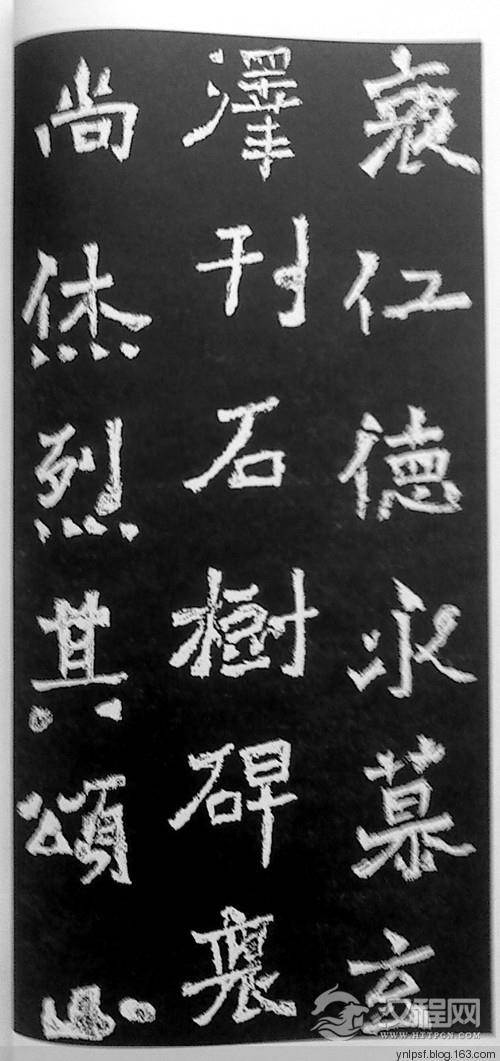 仁德永慕玄
澤刊石樹碑褒
尚烋烈其頌
汉程网
WWW.HTTPCN.COM
ynlpsf.blog.163.com